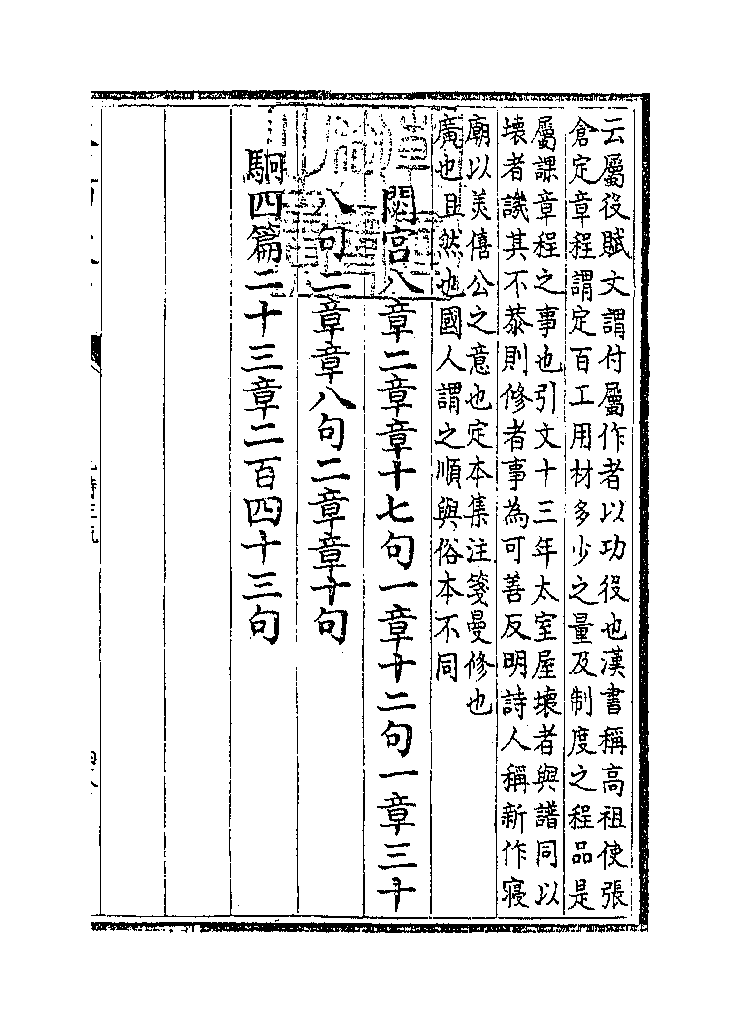 云屬役賦文謂付屬作者以功役也漢書稱高祖使張
倉定章程謂定百工用材多少之量及制度之程品是
屬課章程之事也引文十三年太室屋壊者與譜同以
壊者譏其不恭則修者事為可善反明詩人稱新作寝
廟以美僖公之意也定本集注箋曼修也
廣也且然也國人謂之順與俗本不同
閟宫八章二章章十七句一章十二句一章三十
八句二章章八句二章章十句
駉四篇二十三章二百四十三句